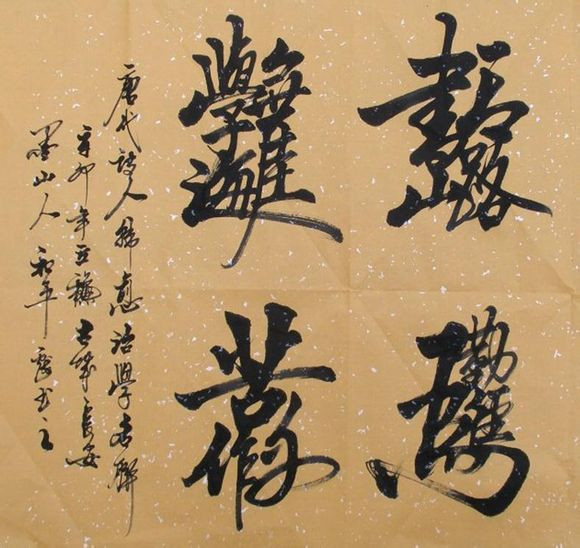 書山有路
勤為徑
學海無涯
苦作舟
唐代詩人韓愈治學名聯
辛卯年 古城長安
墨山人和平 書之